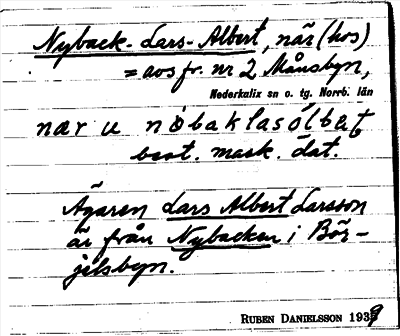 Nyback-Lars-Albert, när (hos)
= avs fr. nr 2 Månsbyn,
Nederkalix sn o. tg. Norrb. län
nær u nøbaklasólbæt
best. mask. dat.
Ägaren Lars Albert Larsson
är från Nybacken i Bör-
jelsbyn.
RUBEN DANIELSSON 1939